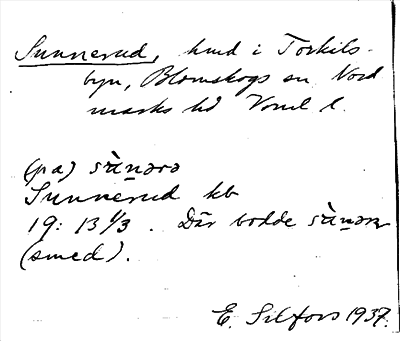 Sunnerud, hmd i Torkils-
byn, Blomskogs sn Nord
marks hd Vrml l.
(pa) sànərə
Sunnerud kb
19: 13 1/3. Där bodde sànər
(smed).
E. Silfors 1937.